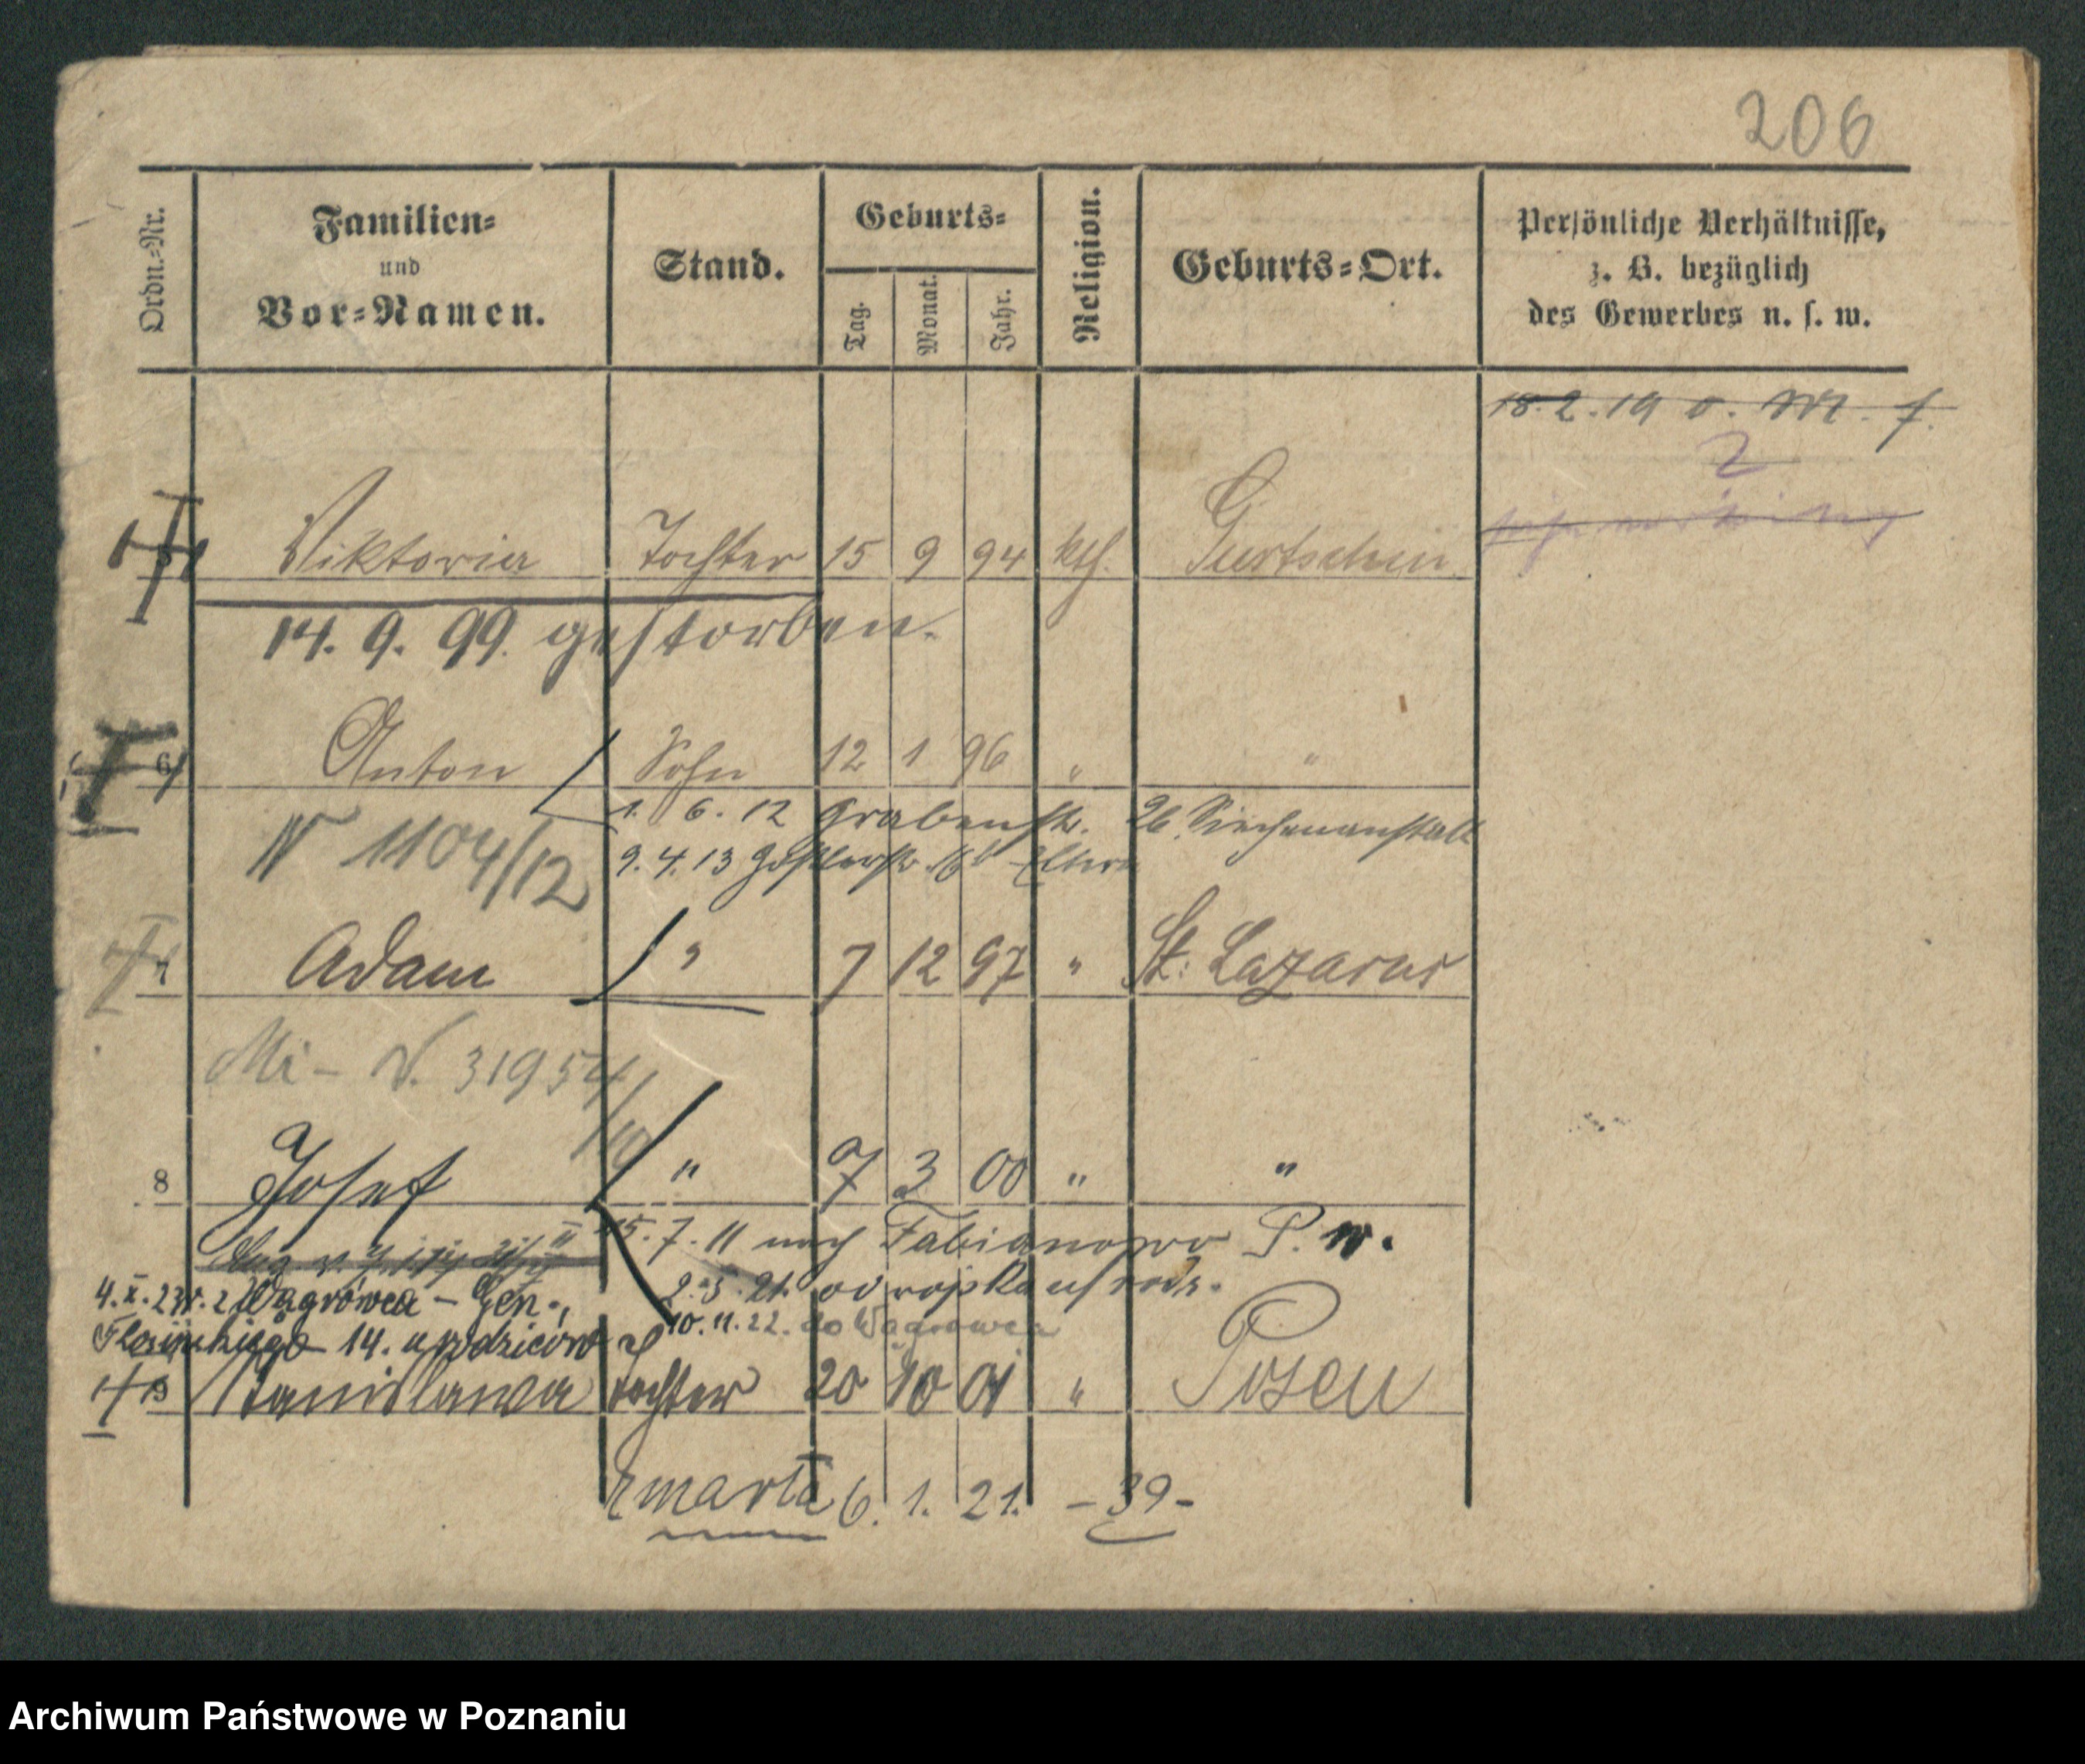 206
Ordn.-Nr.
Familien-
und
Vor-Namen.
Stand.
Geburts-
Tag.
Monat.
Jahr.
Religion.
Geburts-Ort.
Persönliche Verhältnisse,
z. B. bezüglich
des Gewerbes u. s. w.
18.2.19
Viktoria Tochter 15 9 94 kth. Gurtschin
14. 9. 99. gestorben.
6 Anton Sohn 12 1 96 " "
N 1104/12
1. 6. 12 Grabenstr. 26. Siechenanstalt
9. 4. 13 Eltern
7 Adam " 7 12 97 " St. Lazarus
Mi - N. 31954/10
8 Josef " 7 3 00 " "
15. 7. 11 nach Fabianowo P. W.
2. 5. 21. od wojska
4. X. 23 r. z Wągrówca - Gen.
14. u rodziców
10. 11. 22. do Wągrowca
9 Stanislawa Tochter 20 10 01 " Posen
Zmarła 6. 1. 21. - 39 -
Archiwum Państwowe w Poznaniu